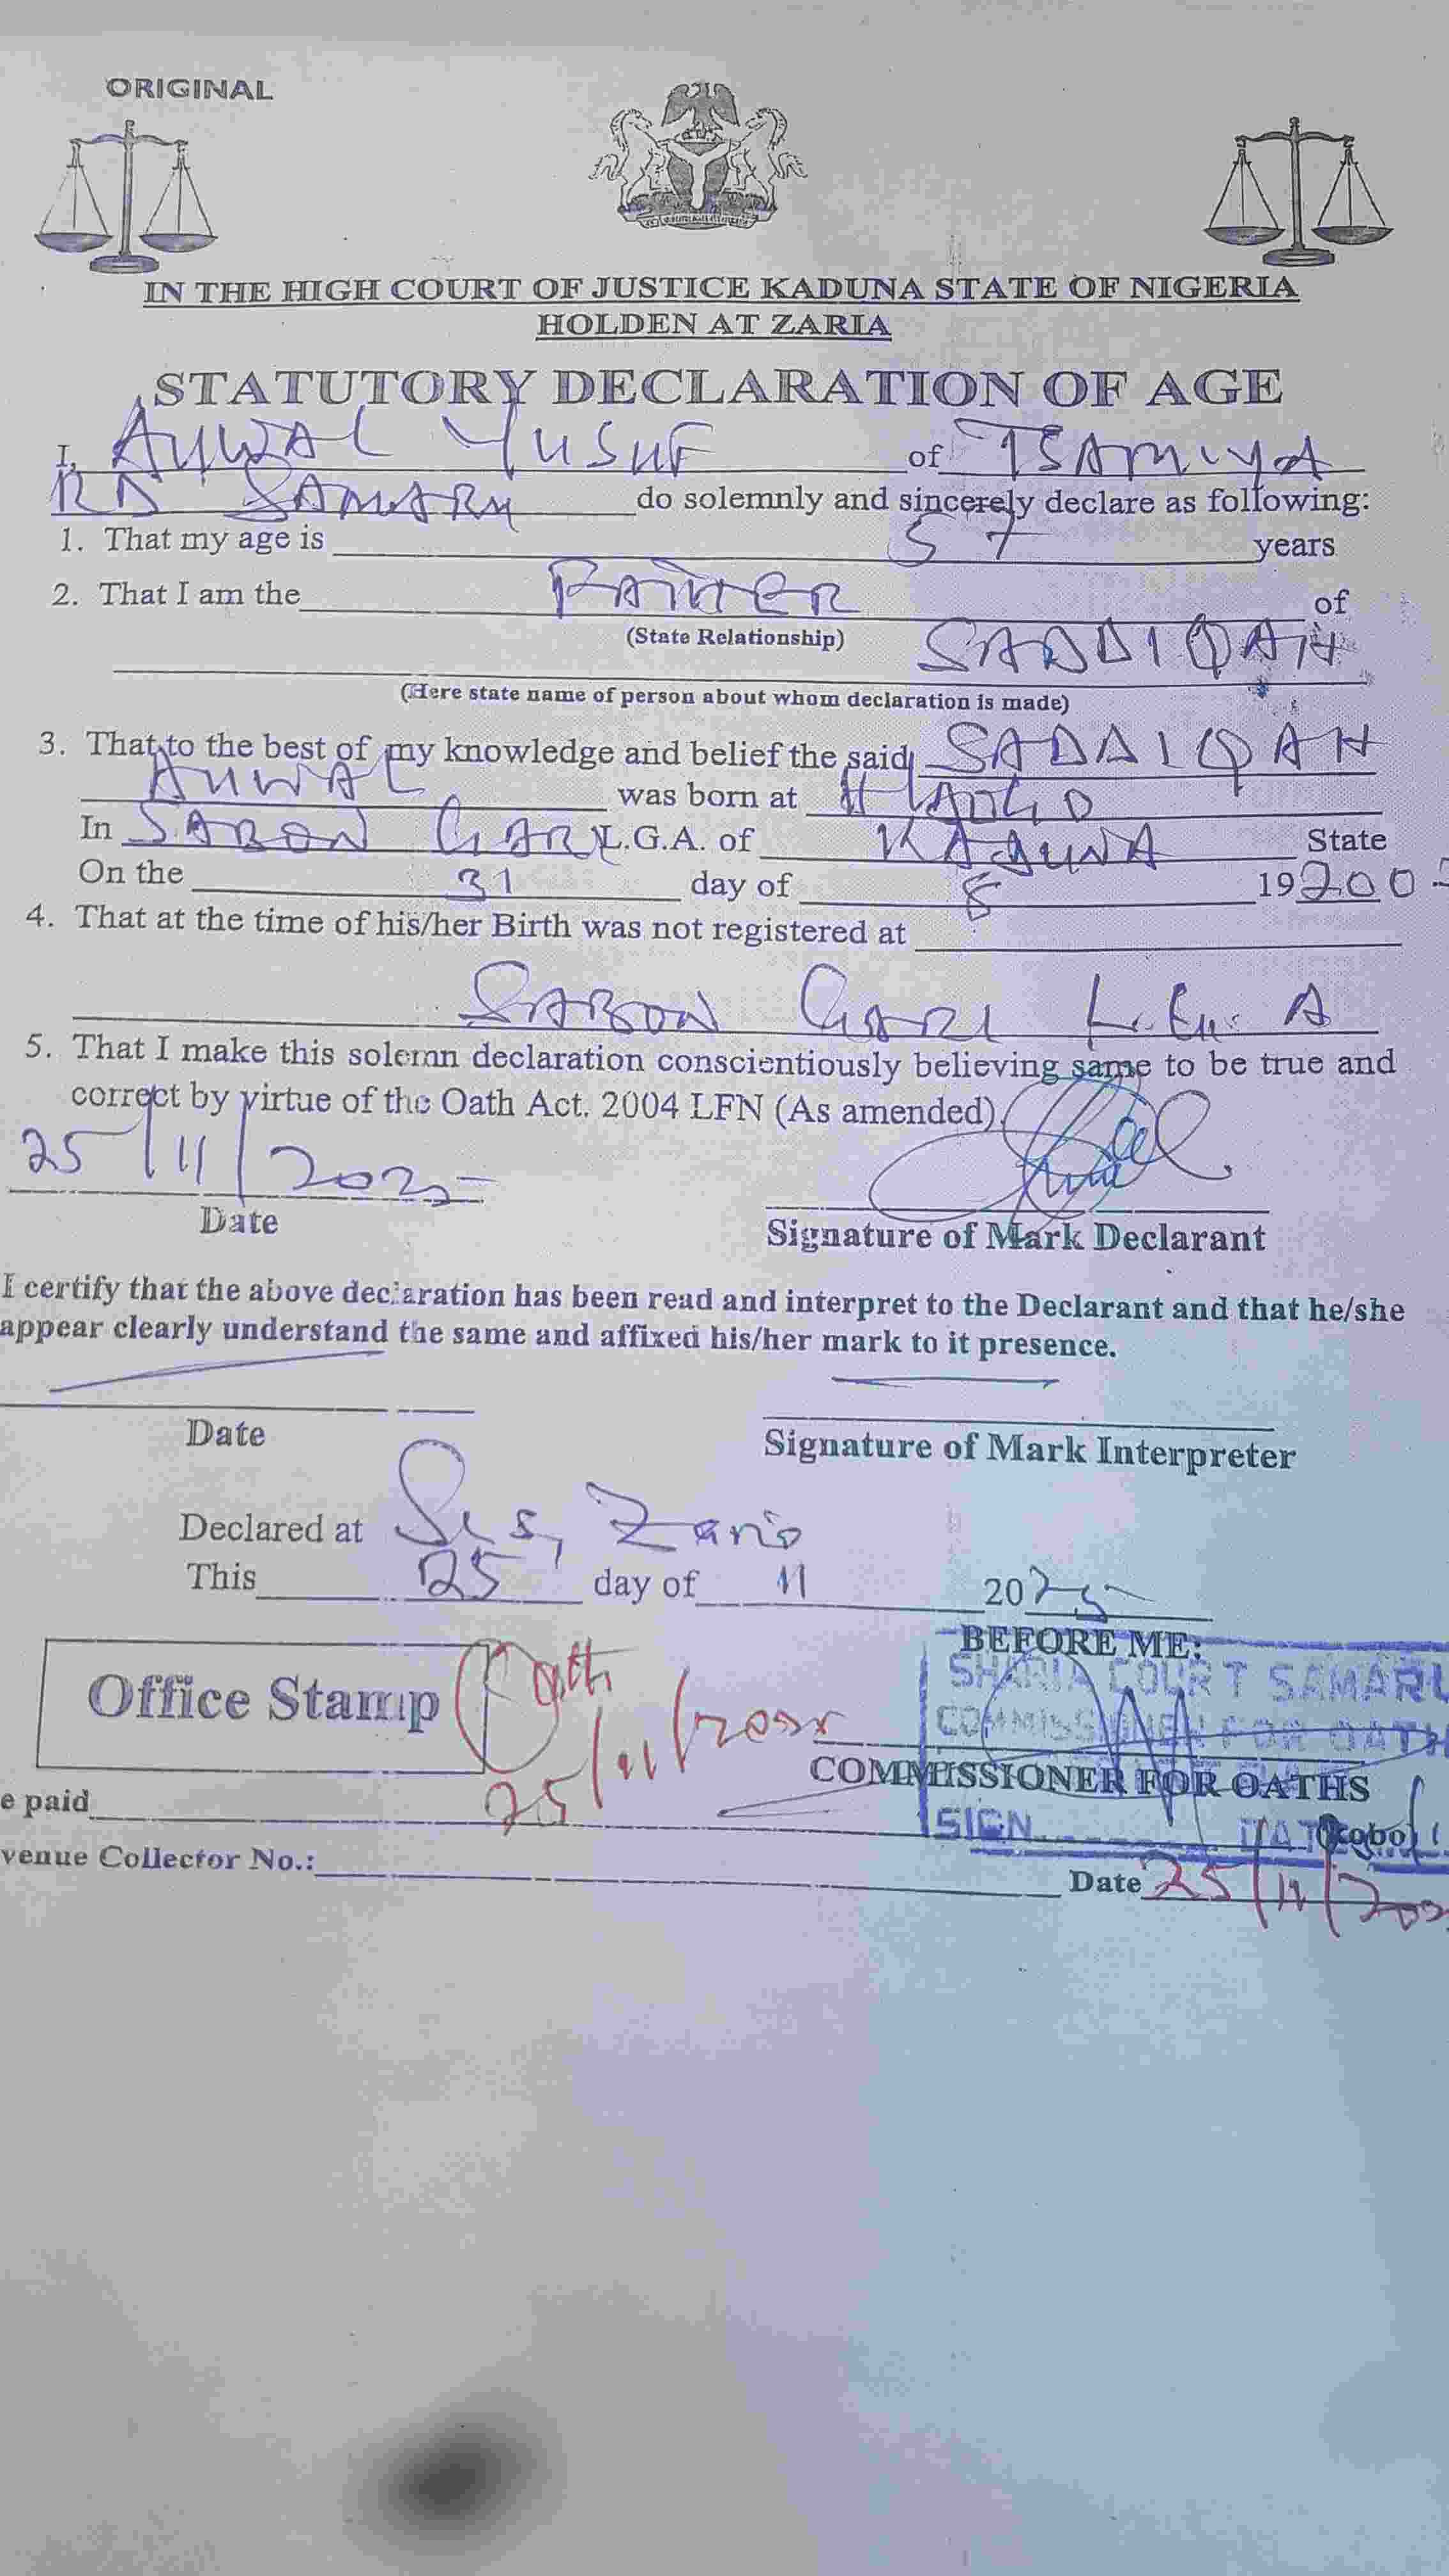 ORIGINAL
IN THE HIGH COURT OF JUSTICE KADUNA STATE OF NIGERIA
HOLDEN AT ZARIA
STATUTORY DECLARATION OF AGE
I, AUWAL YUSUF of TSAMIYA
RD SAMARU do solemnly and sincerely declare as following:
1. That my age is 57 years
2. That I am the FATHER of
(State Relationship) SADDIQAH
(Here state name of person about whom declaration is made)
3. That to the best of my knowledge and belief the said SADDIQAH
AUWAL was born at
In SABON GARI L.G.A. of KADUNA State
On the 31 day of 8 19 200
4. That at the time of his/her Birth was not registered at
SABON GARI L.G.A
5. That I make this solemn declaration conscientiously believing same to be true and
correct by virtue of the Oath Act. 2004 LFN (As amended).
25/11/2025
Date
Signature of Mark Declarant
I certify that the above declaration has been read and interpret to the Declarant and that he/she
appear clearly understand the same and affixed his/her mark to it presence.
Date
Signature of Mark Interpreter
Declared at Zaria
This 25 day of 11 2025
BEFORE ME:
SHARIA COURT SAMARU
Office Stamp Oath
COMMISSIONER FOR OATH
25/11/2025
COMMISSIONER FOR OATHS
e paid
SIGN DATE
venue Collector No.:
Date 25/11/202